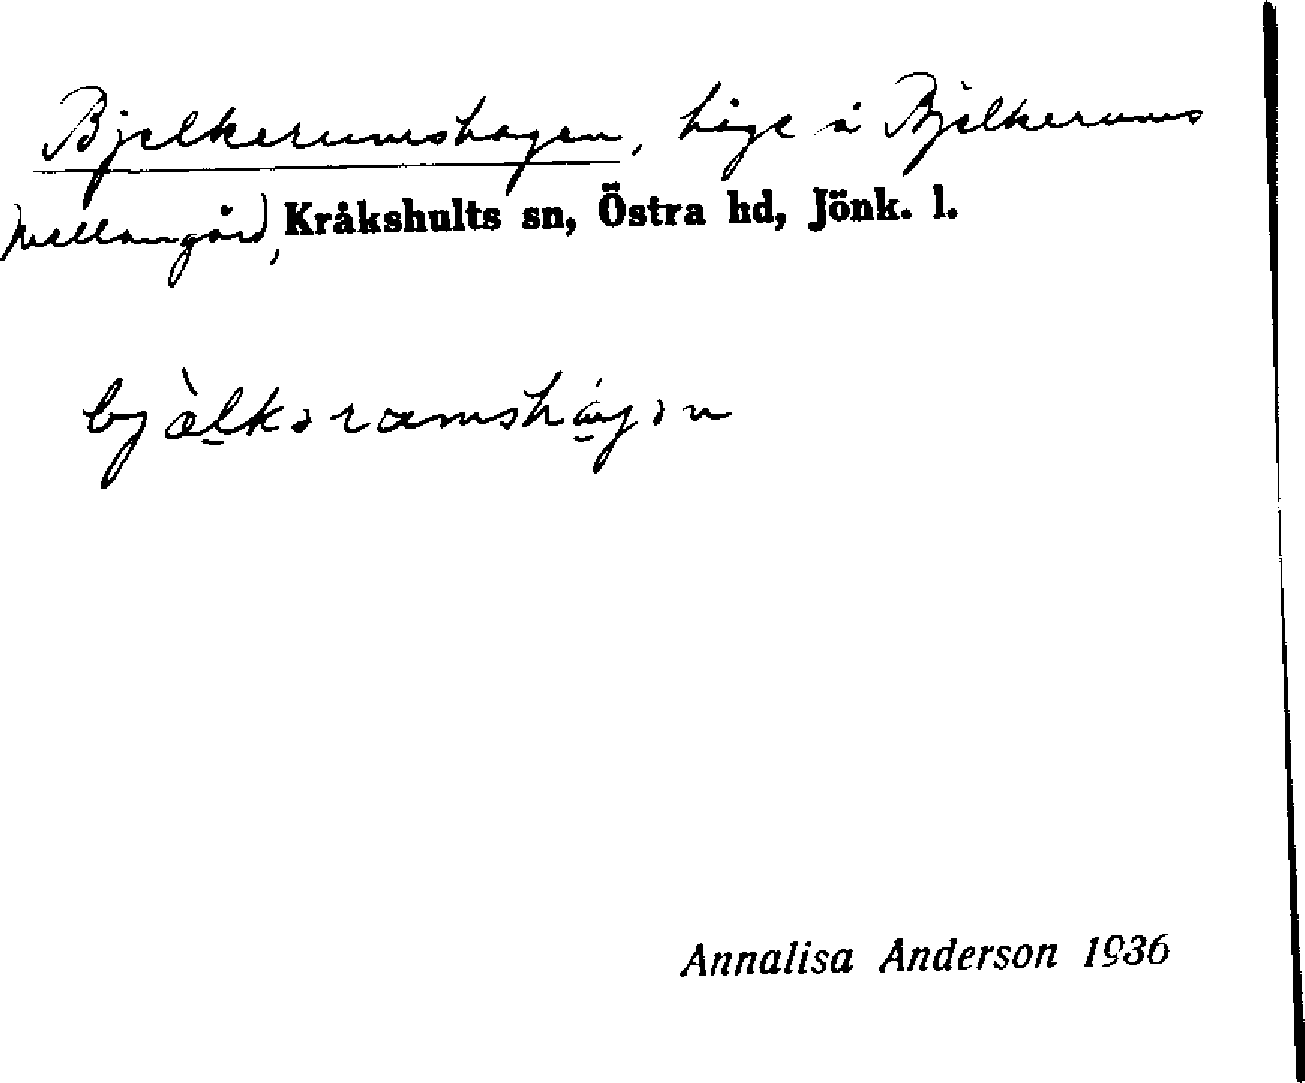 Bjelkerumshagen, häge å Bjelkerums
Mellangård, Kråkshults sn, Östra hd, Jönk. l.
bjàlkəramshágən
Annalisa Anderson 1936